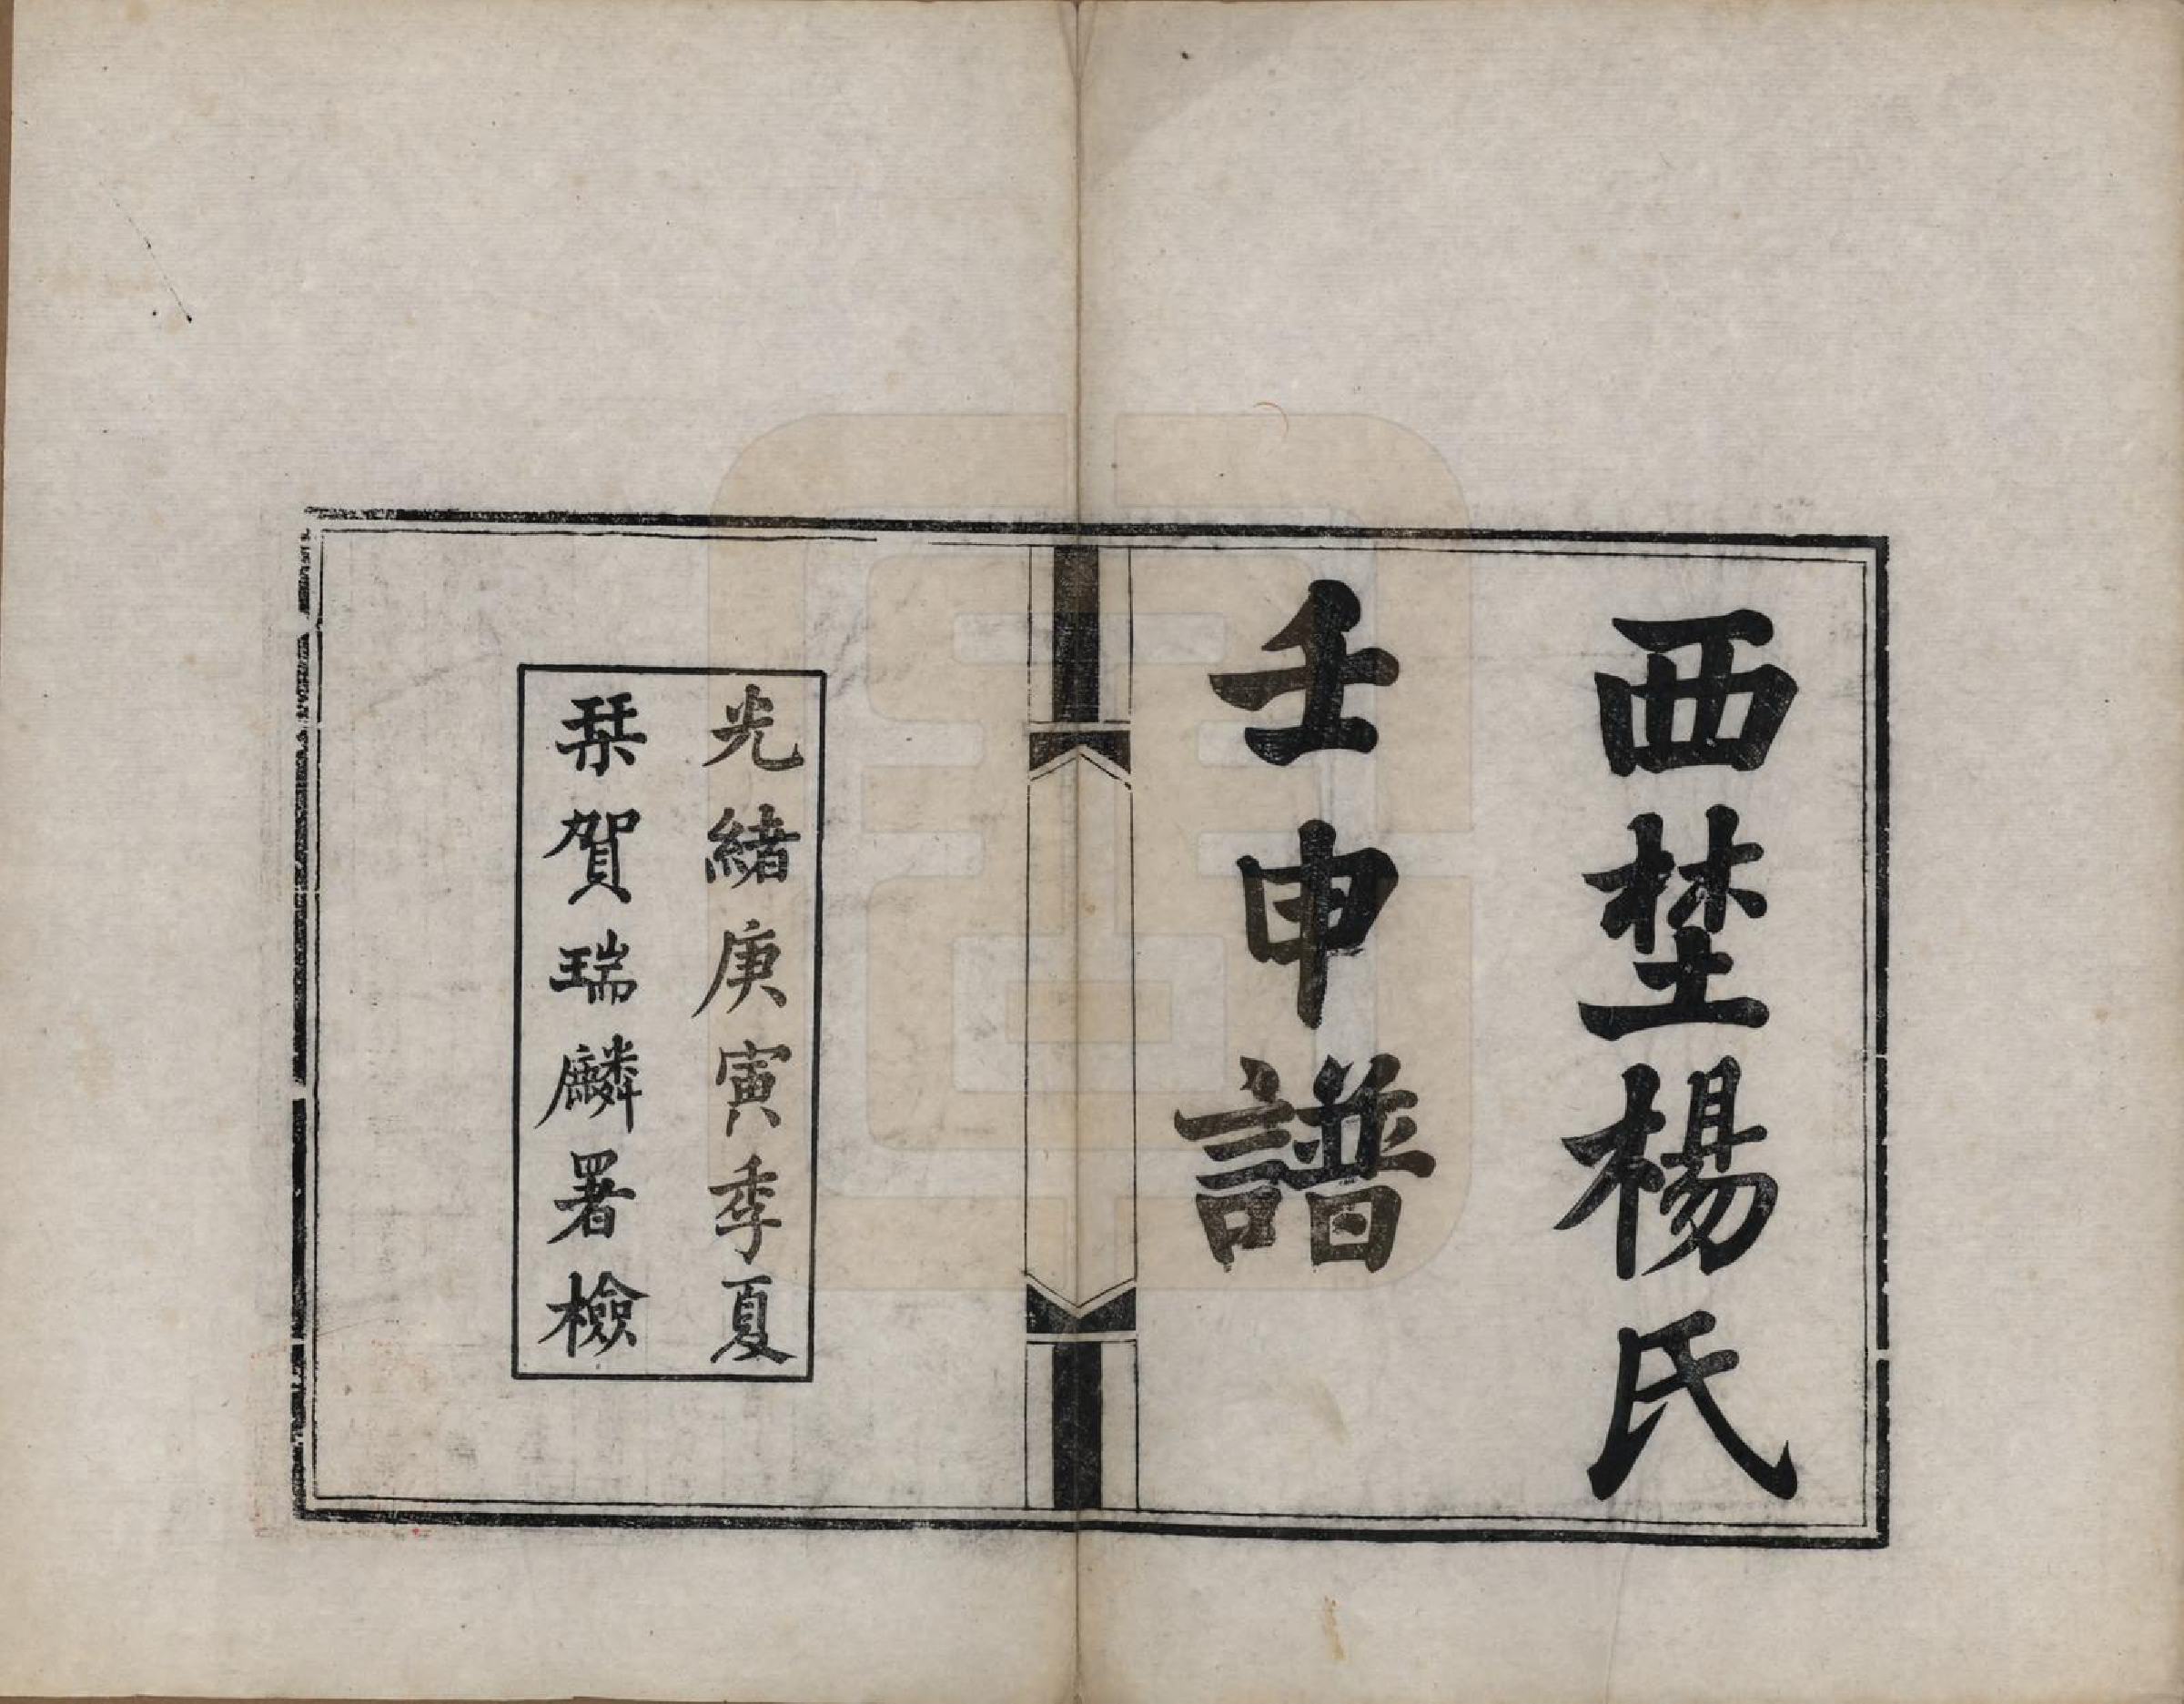 西埜楊氏
壬申譜
光緒庚寅季夏
栞賀瑞麟署檢